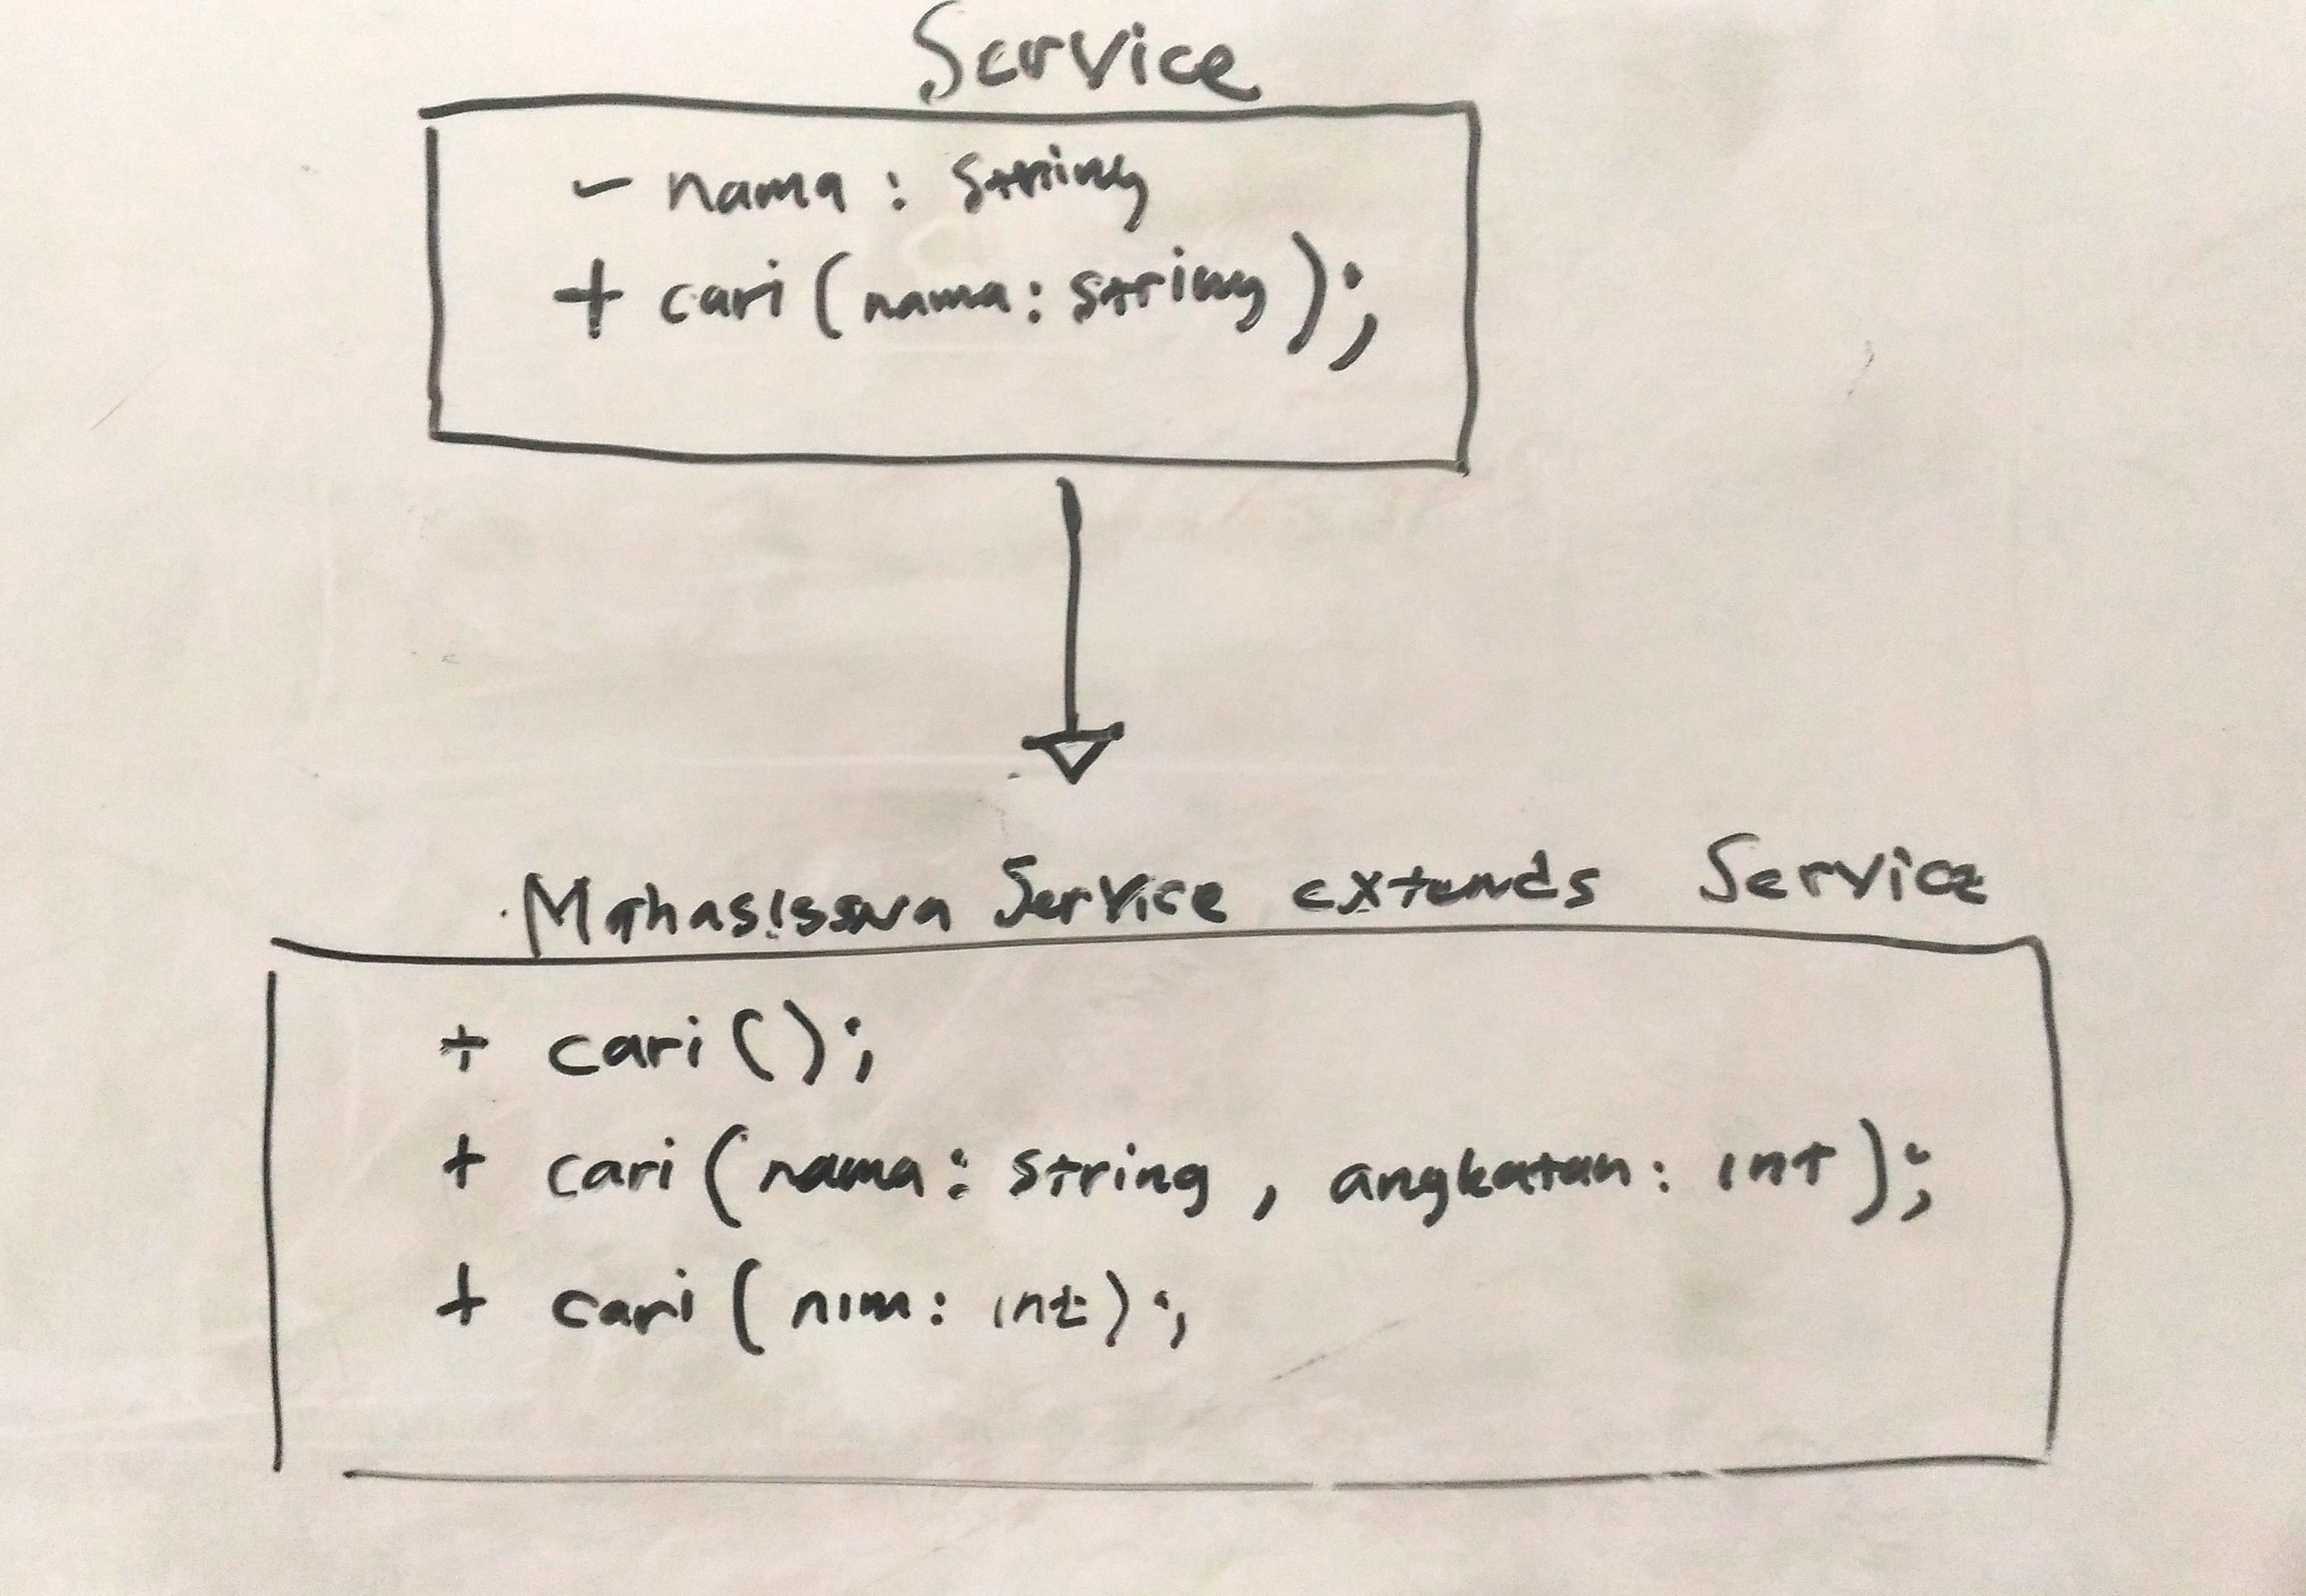 Service
- nama : string
+ cari (nama: string);
Mahasisswa Service extends Service
+ cari ();
+ cari (nama: string, angkatan: int);
+ cari (nim: int);